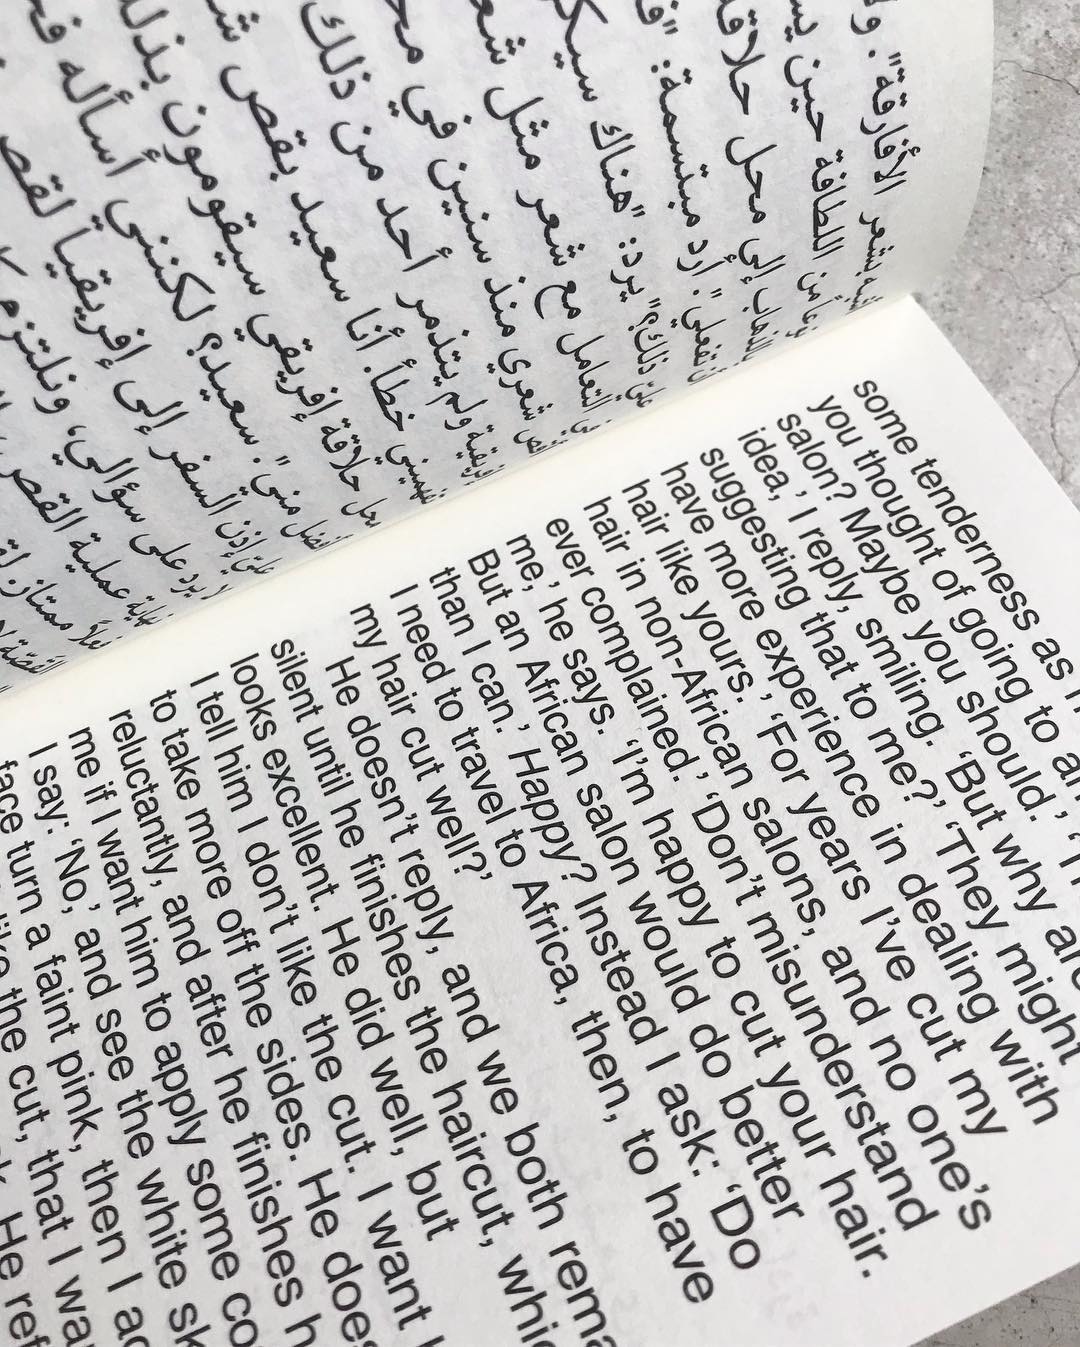 بشعر الأفارقة".
من اللطافة حين
بالذهاب إلى محل حلاقة
تفعلي". أرد مبتسمة:
عليّ ذلك؟" يرد: "هناك
في التعامل مع شعر مثل
شعري منذ سنين في
ولم يتذمر أحد من ذلك
تفهميني خطأ. أنا سعيد بقص
محل حلاقة إفريقي سيقومون
أفضل مني". سعيد؟ لكنني أسأله
عليّ إذن السفر إلى إفريقيا لقص
لا يرد على سؤالي، ونلتزم
نهاية عملية القص
فعلاً ممتاز.
القصّة
some tenderness as
you thought of going to
salon? Maybe you should.'
idea,' I reply, smiling. 'But why are
suggesting that to me?' 'They might
have more experience in dealing with
hair like yours.' 'For years I've cut my
hair in non-African salons, and no one's
ever complained.' 'Don't misunderstand
me,' he says. 'I'm happy to cut your hair.
But an African salon would do better
than I can.' Happy? Instead I ask: 'Do
I need to travel to Africa, then, to have
my hair cut well?'
He doesn't reply, and we both
silent until he finishes the haircut,
looks excellent. He did well, but
I tell him I don't like the cut. I want
to take more off the sides. He
reluctantly, and after he finishes
me if I want him to apply some
I say: 'No,' and see the white
face turn a faint pink, then I
like the cut, that I
He